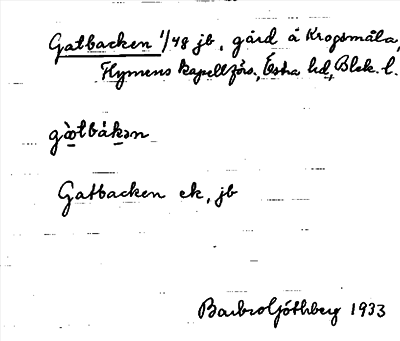 Gatbacken 1/48 jb, gård å Kropsmåla,
Flymens kapellförs., Östra hd, Blek. l.
gὰtbákən
Gatbacken ek, jb
Barbro Göthberg 1933